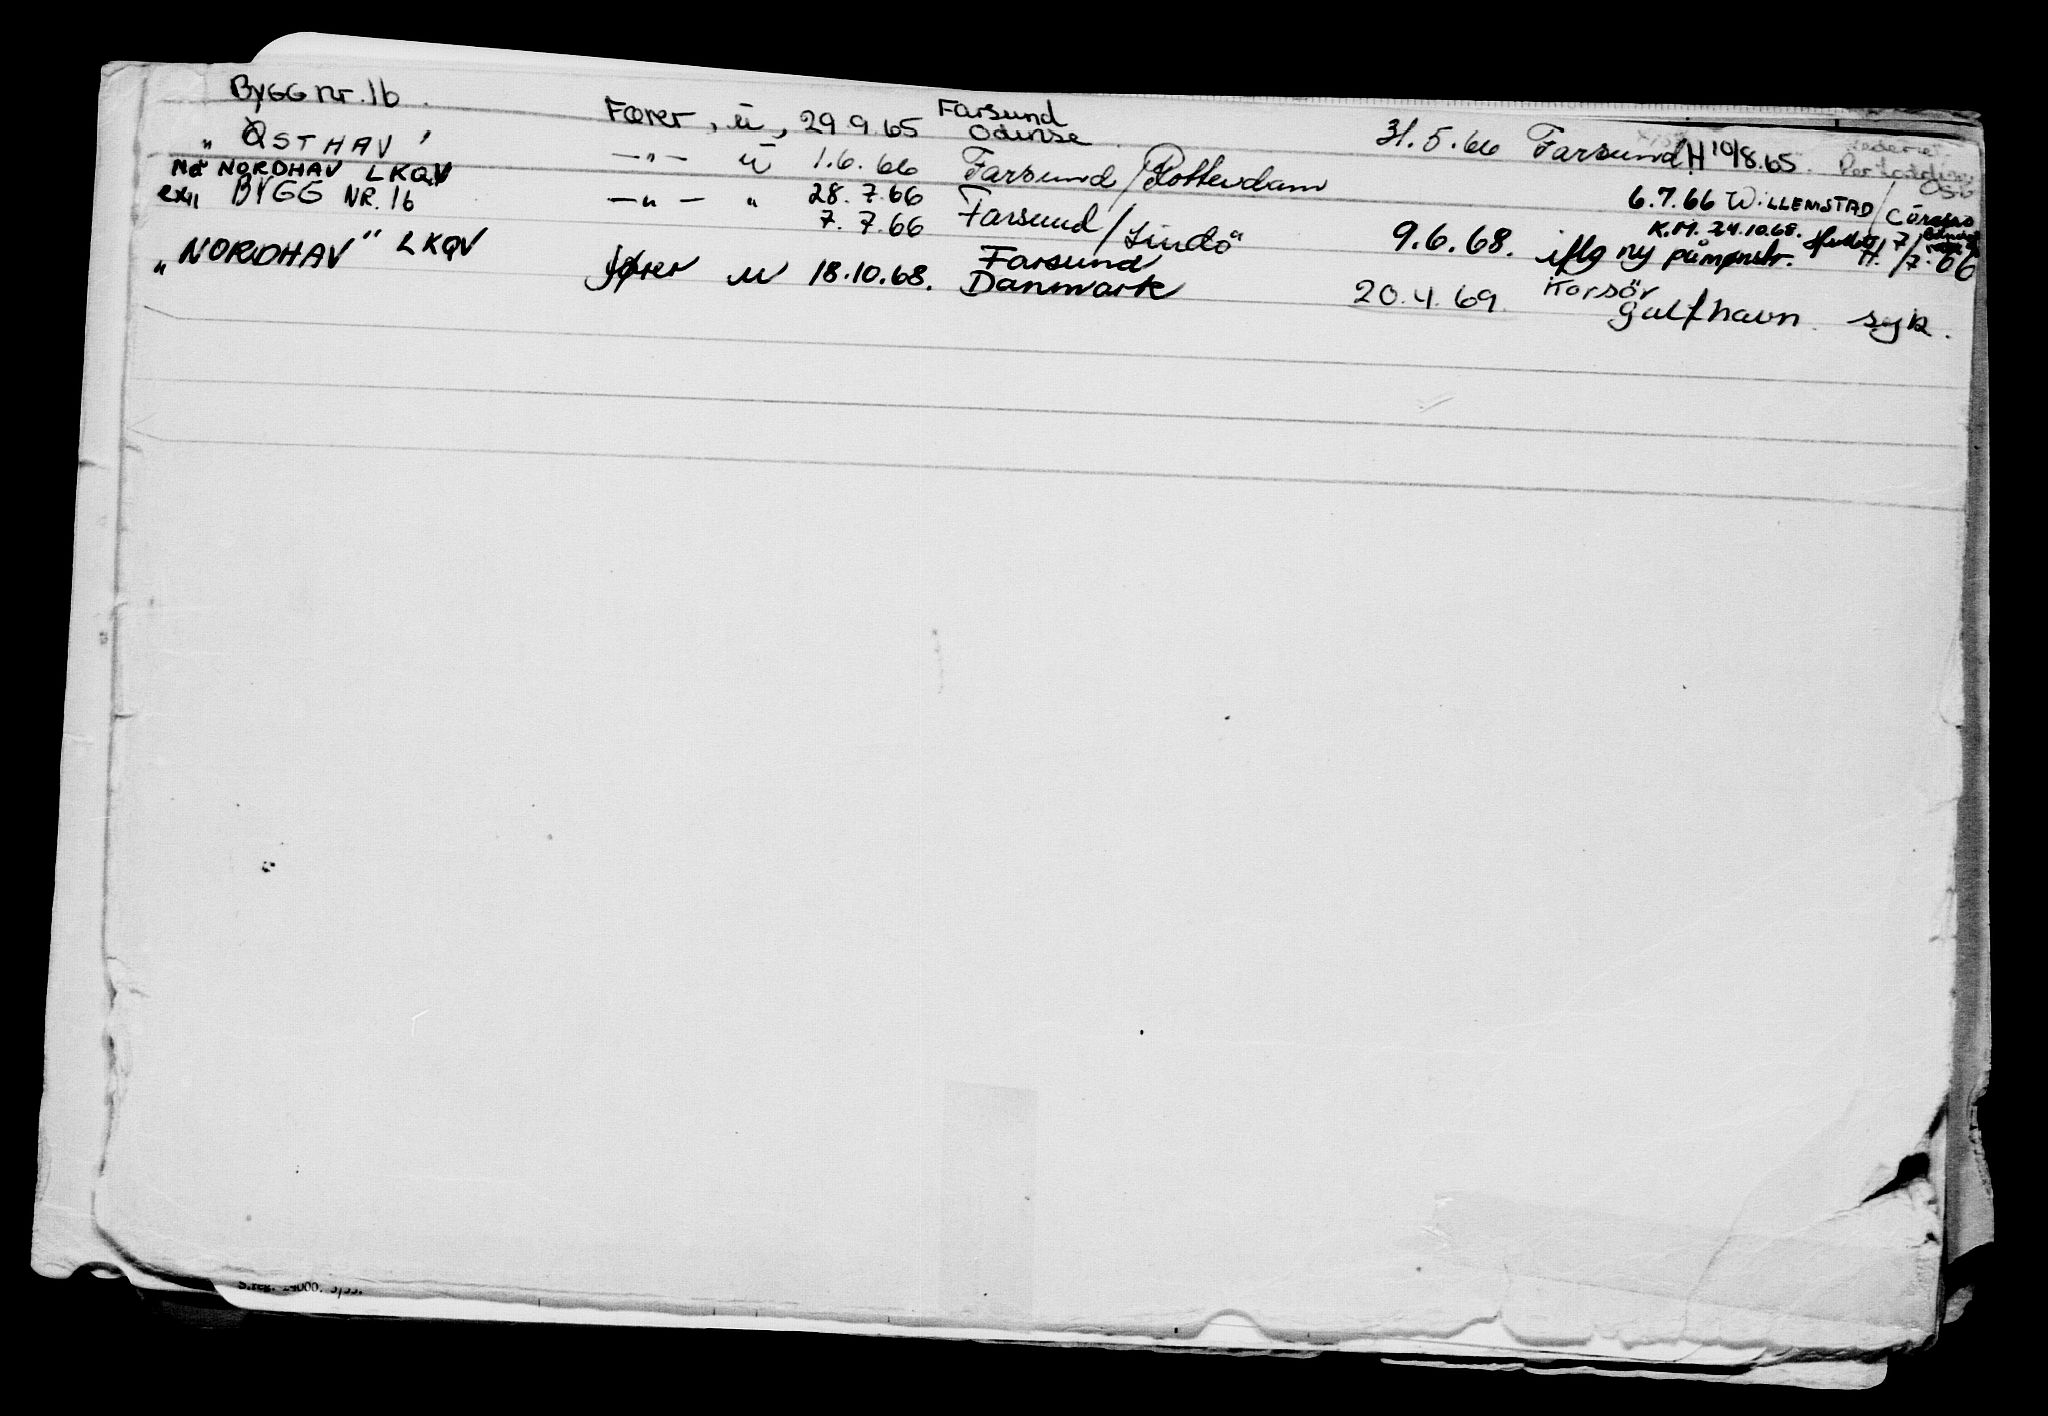 Bygg nr. 16
Fører, u, 29.9.65 Farsund Odense 31.5.66 Farsund H 10/8.65.
"ØSTHAV" —"— u 1.6.66 Farsund/Rotterdam 6.7.66 WILLEMSTAD/Curaçao
Nå NORDHAV LKQV
ex" BYGG NR. 16 —"— " 28.7.66
7.7.66 Farsund/Lindö" 9.6.68. iflg ny påmønstr. K.M. 24.10.68. H. 7/7.66
"NORDHAV" LKQV fører u 18.10.68. Farsund Danmark 20.4.69. Korsör Gulfhavn syk.
S.reg. 24000. 3/55.